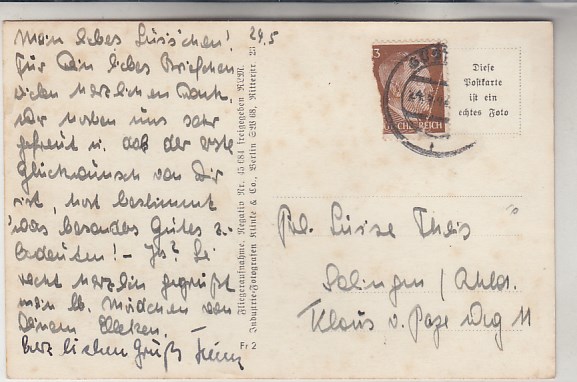 29.5
Mein liebes Luis'chen!
Für Dein liebes Briefchen
vielen herzlichen Dank,
wir haben uns sehr
gefreut u. daß der erste
Glückwunsch von Dir
ist, hat bestimmt
was besonders Gutes zu
bedeuten! – Ja? Sei
recht herzlich gegrüßt
mein lb. Mädchen von
Deinem
herzlichen Gruß
Fliegeraufnahme. Negativ Nr. 45 684 freigegeben RLM.
Industrie-Fotografen Klinke & Co., Berlin SW 68, Ritterstr 23
Fr 2
3
Diese
Postkarte
ist ein
echtes Foto
Frl. Luise Theis
Solingen / Ohligs.
Klaus v. Pape Weg 11